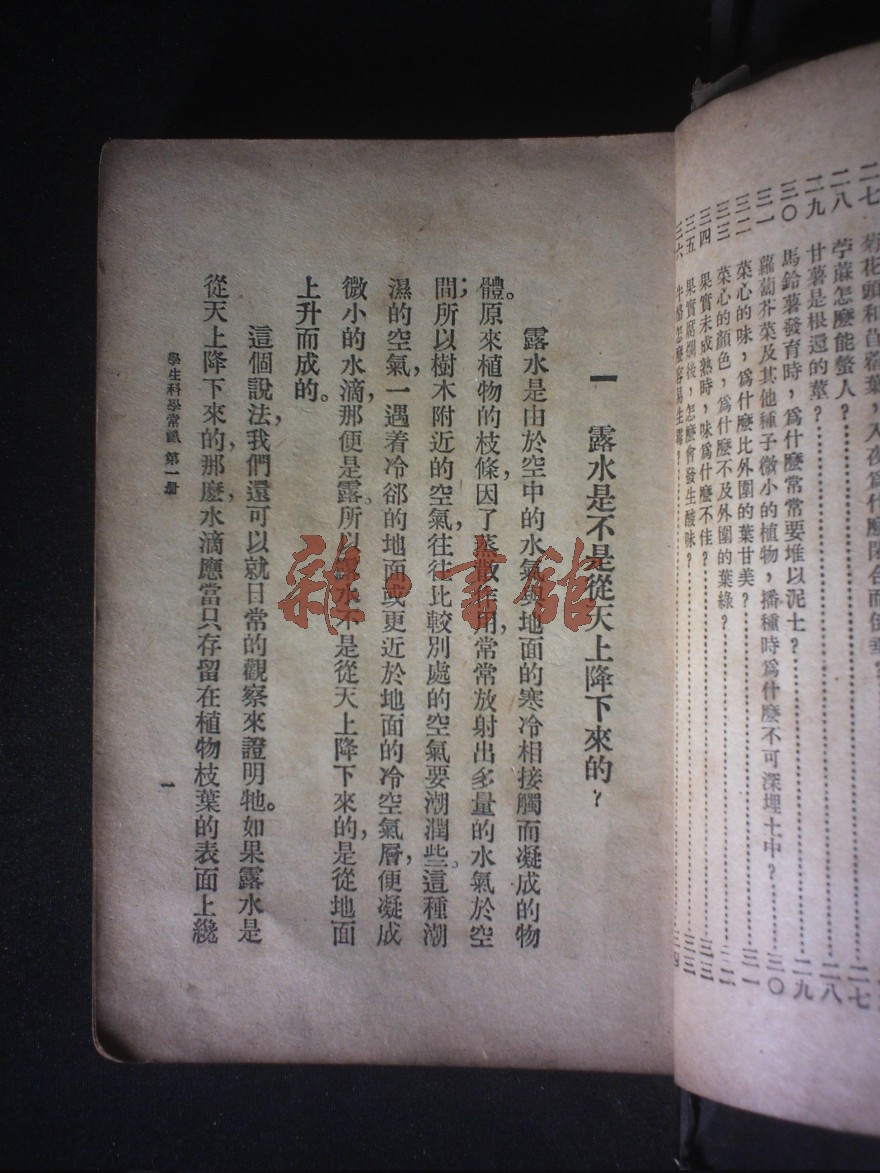 二七 菊花頭和苜蓿葉，入夜爲什麼閉合而倒垂？……二七
二八 苧蔴怎麼能螫人？……二八
二九 甘薯是根還的莖？……二九
三〇 馬鈴薯發育時，爲什麼常常要堆以泥土？……三〇
三一 蘿蔔芥菜及其他種子微小的植物，播種時爲什麼不可深埋土中？……三〇
三二 菜心的味，爲什麼比外圍的葉甘美？……三一
三三 菜心的顏色，爲什麼不及外圍的葉綠？……三二
三四 果實未成熟時，味爲什麼不佳？……三三
三五 果實腐爛後，怎麼會發生酸味？……三三
三六 怎麼容易生霉？……三四
一 露水是不是從天上降下來的？
露水是由於空中的水氣，與地面的寒冷相接觸而凝成的物
體。原來植物的枝條，因了蒸散作用，常常放射出多量的水氣於空
間；所以樹木附近的空氣，往往比較別處的空氣要潮潤些。這種潮
濕的空氣，一遇着冷郤的地面或更近於地面的冷空氣層，便凝成
微小的水滴，那便是露。所以露水不是從天上降下來的，是從地面
上升而成的。
這個說法，我們還可以就日常的觀察來證明牠。如果露水是
從天上降下來的，那麼，水滴應當只存留在植物枝葉的表面上纔
學生科學常識 第一册
一
雜·書館